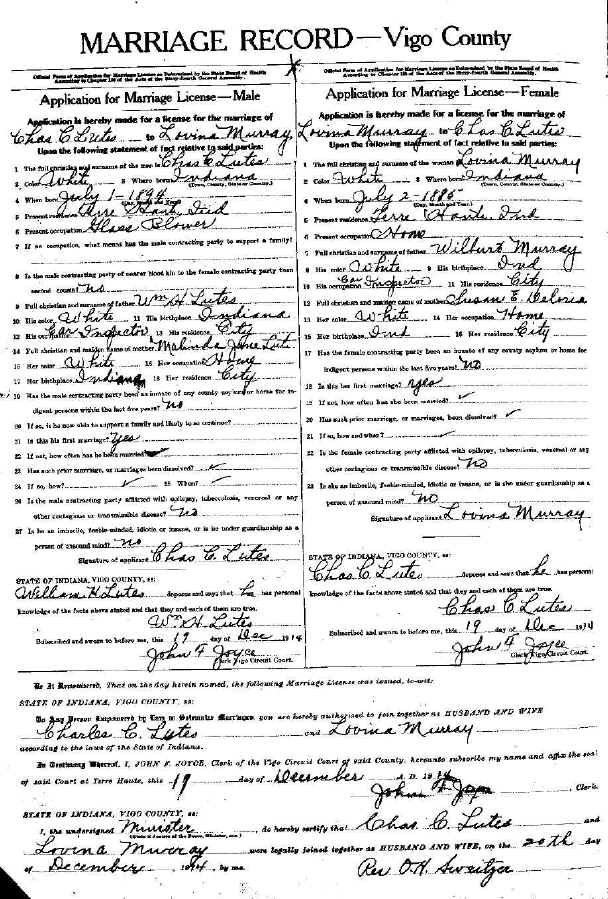 MARRIAGE RECORD—Vigo County
Official Form of Application for Marriage License as Determined by the State Board of Health
According to Chapter 126 of the Acts of the Sixty-fourth General Assembly.
Application for Marriage License—Male
Application is hereby made for a license for the marriage of
Chas C Lutes to Lovina Murray,
Upon the following statement of fact relative to said parties:
1 The full christian and surname of the man Chas C Lutes
2 Color White 3 Where born Indiana
(Town, County, State or Country.)
4 When born July 1-1894
5 Present residence Terre Haute Ind
6 Present occupation Glass Blower
7 If no occupation, what means has the male contracting party to support a family?
8 Is the male contracting party of nearer blood kin to the female contracting party than
second cousin? no
9 Full christian and surname of father Wm H Lutes
10 His color White 11 His birthplace Indiana
12 His occupation Car Inspector 13 His residence City
14 Full christian and maiden name of mother Malinda Jane
15 Her color White 16 Her occupation Home
17 Her birthplace Indiana 18 Her residence City
19 Has the male contracting party been an inmate of any county asylum or home for in-
digent persons within the last five years? no
20 If so, is he now able to support a family and likely to so continue?
21 Is this his first marriage? Yes
22 If not, how often has he been married?
23 Has such prior marriage, or marriages been dissolved?
24 If so, how? 25 When?
26 Is the male contracting party afflicted with epilepsy, tuberculosis, venereal or any
other contagious or transmissible disease? No
27 Is he an imbecile, feeble-minded, idiotic or insane, or is he under guardianship as a
person of unsound mind? no
Signature of applicant Chas C. Lutes
STATE OF INDIANA, VIGO COUNTY, ss:
William H Lutes deposes and says that he has personal
knowledge of the facts above stated and that they and each of them are true.
Wm H Lutes
Subscribed and sworn to before me, this 19 day of Dec 1914
John F Joyce
Clerk Vigo Circuit Court.
Official Form of Application for Marriage License as Determined by the State Board of Health
According to Chapter 126 of the Acts of the Sixty-fourth General Assembly.
Application for Marriage License—Female
Application is hereby made for a license for the marriage of
Lovina Murray to Chas C Lutes
Upon the following statement of fact relative to said parties:
1 The full christian and surname of the woman Lovina Murray
2 Color White 3 Where born Indiana
(Town, County, State or Country.)
4 When born July 2-1886
(Day, Month and Year.)
5 Present residence Terre Haute Ind
6 Present occupation Home
7 Full christian and surname of father Wilburt Murray
8 His color White 9 His birthplace Ind
10 His occupation Inspector 11 His residence City
12 Full christian and maiden name of mother Susan E
13 Her color White 14 Her occupation Home
15 Her birthplace Ind 16 Her residence City
17 Has the female contracting party been an inmate of any county asylum or home for
indigent persons within the last five years? no
18 Is this her first marriage? yes
19 If not, how often has she been married?
20 Has such prior marriage, or marriages, been dissolved?
21 If so, how and when?
22 Is the female contracting party afflicted with epilepsy, tuberculosis, venereal or any
other contagious or transmissible disease? no
23 Is she an imbecile, feeble-minded, idiotic or insane, or is she under guardianship as a
person of unsound mind? no
Signature of applicant Lovina Murray
STATE OF INDIANA, VIGO COUNTY, ss:
Chas C Lutes deposes and says that he has personal
knowledge of the facts above stated and that they and each of them are true.
Chas C Lutes
Subscribed and sworn to before me, this 19 day of Dec 1914
John F Joyce
Clerk Vigo Circuit Court.
Be It Remembered, That on the day herein named, the following Marriage License was issued, to-wit:
STATE OF INDIANA, VIGO COUNTY, ss:
To Any Person Empowered by Law to Solemnize Marriages, you are hereby authorized to join together as HUSBAND AND WIFE
Charles C. Lutes and Lovina Murray
according to the laws of the State of Indiana.
In Testimony Whereof, I, JOHN F. JOYCE, Clerk of the Vigo Circuit Court of said County, hereunto subscribe my name and affix the seal
of said Court at Terre Haute, this 19 day of December A. D. 1914
John F Joyce Clerk.
STATE OF INDIANA, VIGO COUNTY, ss:
I, the undersigned Minister do hereby certify that Chas C. Lutes and
Lovina Murray were legally joined together as HUSBAND AND WIFE, on the 20th day
of December 1914 by me. Rev O.H. Sweitzer